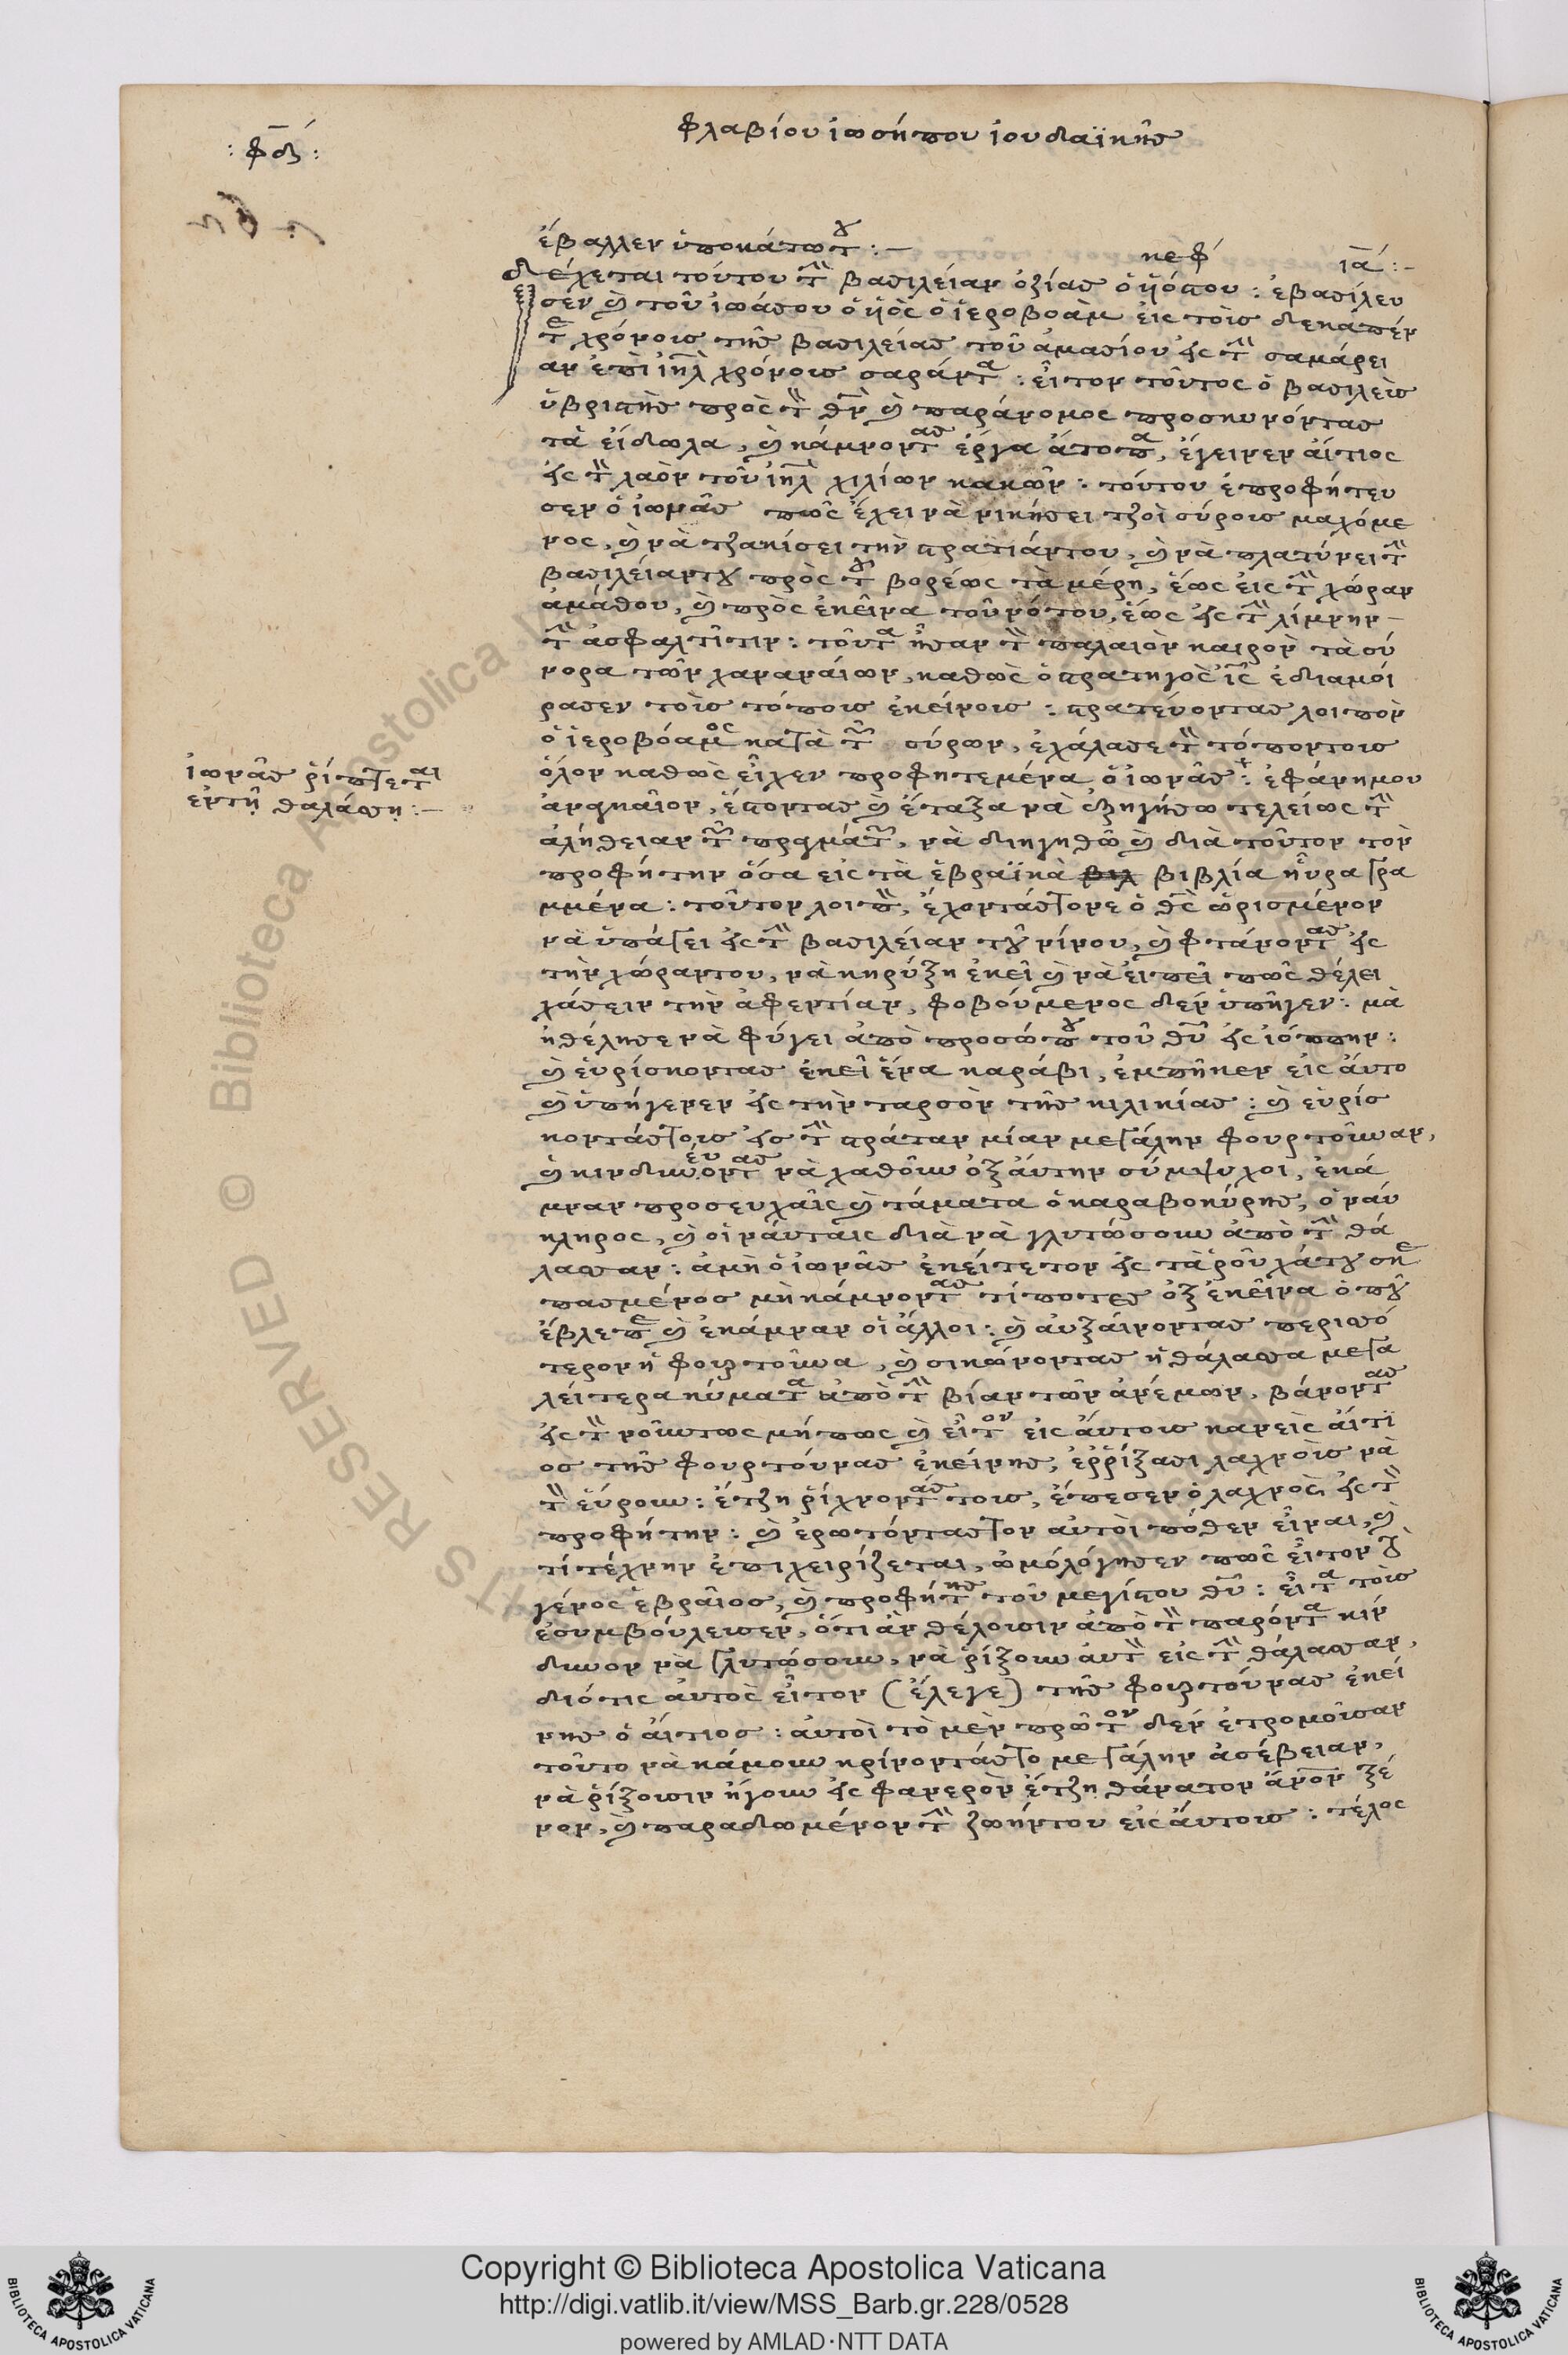 φλαβίου ἰωσήπου ἰουδαϊκῆς
:φδ:
ἔβαλλεν ὑποκάτωτου :—
κεφ ια :—
δέχεται τούτου τὴν βασιλείαν ὀζίας ὁ ὑιόστου : ἐβασίλευ
σεν καὶ τοῦ ἰωάσου ὁ ὑιὸς ὁ ἱεροβοὰμ εἰς τοὶς δεκάπέν
τε χρόνοις τῆς βασιλείας τοῦ ἀμασίου εἰς τὴν σαμάρει
αν ἐπὶ ἰηλ χρόνοις σαράντα : εἶτον τοῦτος ὁ βασιλεὺς
ὑβριστὴς πρὸς τὸν θν καὶ παράνομος προσκυνόντας
τὰ εἴδωλα, καὶ κάμνοντας ἔργα ἄτοπα, ἔγεινεν ἄιτιος
εἰς τὸν λαὸν τοῦ ἰηλ χιλίων κακῶν : τούτου ἐπροφήτευ
σεν ὁ ἰωνᾶς πῶς ἔχει νὰ νικήσει τζοὶ σύροις μαχόμε
νος, καὶ νὰ τζακίσει τὴν στρατιάντου, καὶ νὰ πλατύνει τὴν
βασιλείαντου πρὸς τοῦ βορέως τὰ μέρη, ἕως εἰς τὴν χώραν
ἀμάθου, καὶ πρὸς ἐκεῖνα τοῦ νότου, ἕως εἰς τὴν λίμνην
τὴν ἀσφαλτῖτιν : τοῦτα ἦσαν τὸν παλαιὸν καιρὸν τὰ σύ
νορα τῶν χαναναίων, καθὼς ὁ στρατηγὸς ις ἐδιαμοί
ρασεν τοὶς τόποις ἐκείνοις : στρατεύοντας λοιπὸν
ὁ ἱεροβόαμος κατὰ τῶν σύρων, ἐχάλασε τὸν τόποντοις
ὅλον καθὼς εἶχεν προφητεμένα ὁ ἰωνᾶς : ἐφάνημου
ἀναγκαῖον, ἔστοντας καὶ ἔταξα νὰ ἐξηγήσω τελείως τὴν
ἀλήθειαν τῶν πραγμάτων, νὰ διηγηθῶ καὶ διὰ τοῦτον τὸν
προφήτην ὅσα εἰς τὰ ἑβραϊκὰ βιλ βιβλία ηὗρα γρα
μμένα : τοῦτον λοιπὸν, ἔχοντάςτονε ὁ θς ὡρισμένον
νὰ ὑπάγει εἰς τὴν βασιλείαν τοῦ νίνου, καὶ φτάνοντας εἰς
τὴν χώραντου, νὰ κηρύξη ἐκεῖ καὶ νὰ ἐιπεῖ πῶς θέλει
χάσειν τὴν ἀφεντίαν, φοβούμενος δὲν ὑπῆγεν : μὰ
ἠθέλησε νὰ φύγει ἀπὸ προσώπου τοῦ θυ εἰς ἰόππην :
καὶ ἑυρίσκοντας ἐκεῖ ἕνα καράβι, ἐμπῆκεν εἰς ἄυτο
καὶ ὑπήγενεν εἰς τὴν ταρσὸν τῆς κιλικίας : καὶ εὑρίσ
κοντάςτοις εἰς τὴν στράταν μίαν μεγάλην φουρτοῦναν,
καὶ κινδυνεύοντας νὰ χαθοῦν ὀξάυτην σύμψυχοι, ἐκά
μναν προσευχαῖς καὶ τάματα ὁ καραβοκύρης, ὁ ναύ
κληρος, καὶ οἱ ναύταις διὰ νὰ γλυτώσουν ἀπὸ τὴν θά
λασσαν : ἀμὴ ὁ ἰωνᾶς ἐκείτετον εἰς τὰ ῥοῦχάτου σκε
πασμένος μὴ κάμνοντας τίποτες ὀξ ἐκεῖνα ὁποῦ
ἔβλεπε καὶ ἐκάμναν οἱ ἄλλοι : καὶ ἀυξάινοντας περισσό
τερον ἡ φουρτοῦνα, καὶ σικώνοντας ἡ θάλασσα μεγα
λείτερα κύματα ἀπὸ τὴν βίαν τῶν ἀνέμων, βάνοντας
εἰς τὸν νοῦντως μήπως καὶ εἶτον εἰς ἄυτοις κανεὶς ἄιτι
ος τῆς φουρτούνας ἐκείνης, ἐῤῥίξασι λαχνοὶς νὰ
τὸν ἕυρουν : ἔτζη ῥίχνοντάς τοις, ἔπεσεν ὁ λαχνὸς εἰς τὸν
προφήτην : καὶ ἐρωτόνταςτον αὐτοὶ πόθεν εἶναι, καὶ
τί τέχνην ἐπιχειρίζεται, ὡμολόγησεν πῶς εἶτον τὸ
γένος ἑβραῖος, καὶ προφήτης τοῦ μεγίστου θυ : εἶτα τοις
ἐσυμβόυλευσεν, ὅτι ἂν θέλουσιν ἀπὸ τὸν παρόντα κίν
δυνον νὰ γλυτώσουν, νὰ ῥίξουν ἀυτὸν εἰς τὴν θάλασσαν,
διότις ἀυτὸς εἶτον (ἔλεγε) τῆς φουρτούνας ἐκεί
νης ὁ ἄιτιος : ἀυτοὶ τὸ μὲν πρῶτον δὲν ἐτρομοῦσαν
τοῦτο νὰ κάμουν κρίνοντάςτο μεγάλην ἀσέβειαν,
νὰ ῥίξουσιν ἤγουν εἰς φανερὸν ἔτζη θάνατον ἄνον ξέ
νον, καὶ παραδωμένον τὴν ζωήντου εἰς ἄυτοις : τέλος
ἰωνᾶς ῥίπτεται
ἐντῇ θαλάσσῃ :—
Copyright © Biblioteca Apostolica Vaticana
http://digi.vatlib.it/view/MSS_Barb.gr.228/0528
powered by AMLAD·NTT DATA
BIBLIOTECA APOSTOLICA VATICANA
BIBLIOTECA APOSTOLICA VATICANA